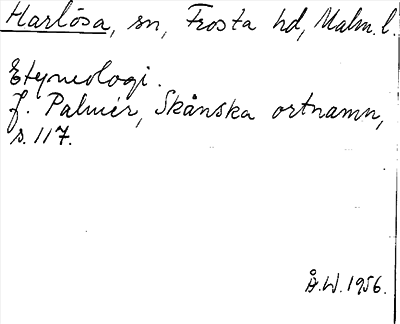 Harlösa, sn, Frosta hd, Malm. l.
Etymologi.
J. Palmér, Skånska ortnamn,
s. 117.
Å.W. 1956.